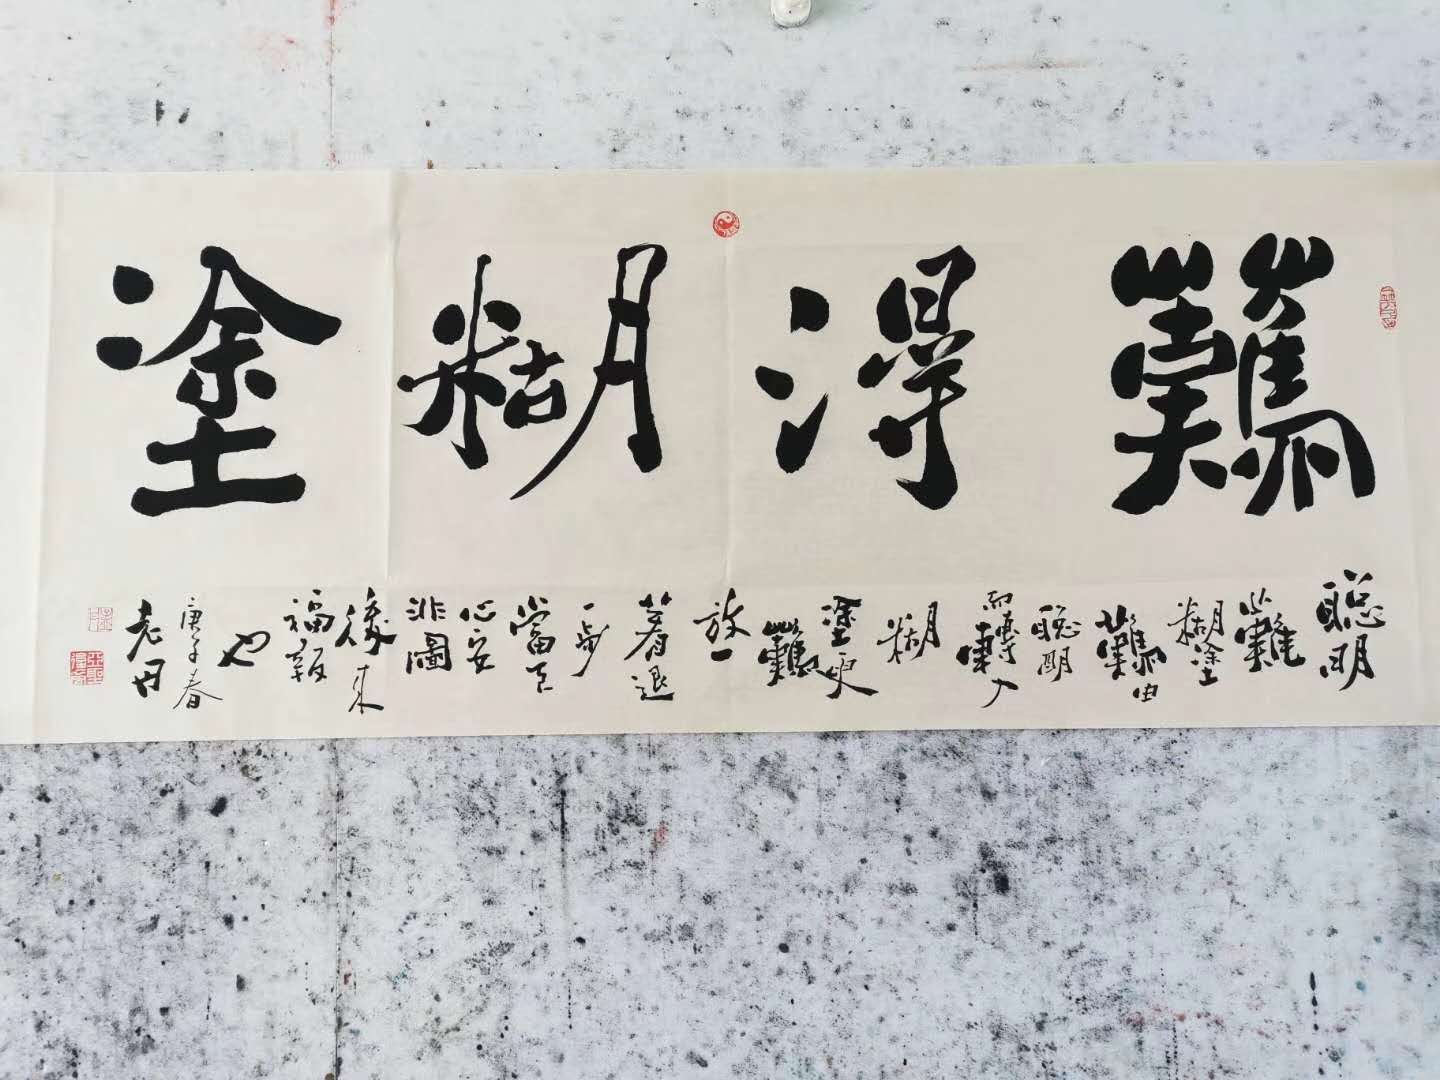 難得糊塗
聰明
難
糊塗
難由
聰明
而轉入
糊
塗更
難
放一
著退
一步
當下
心安
非圖
後來
福報
也
庚子春
老丹